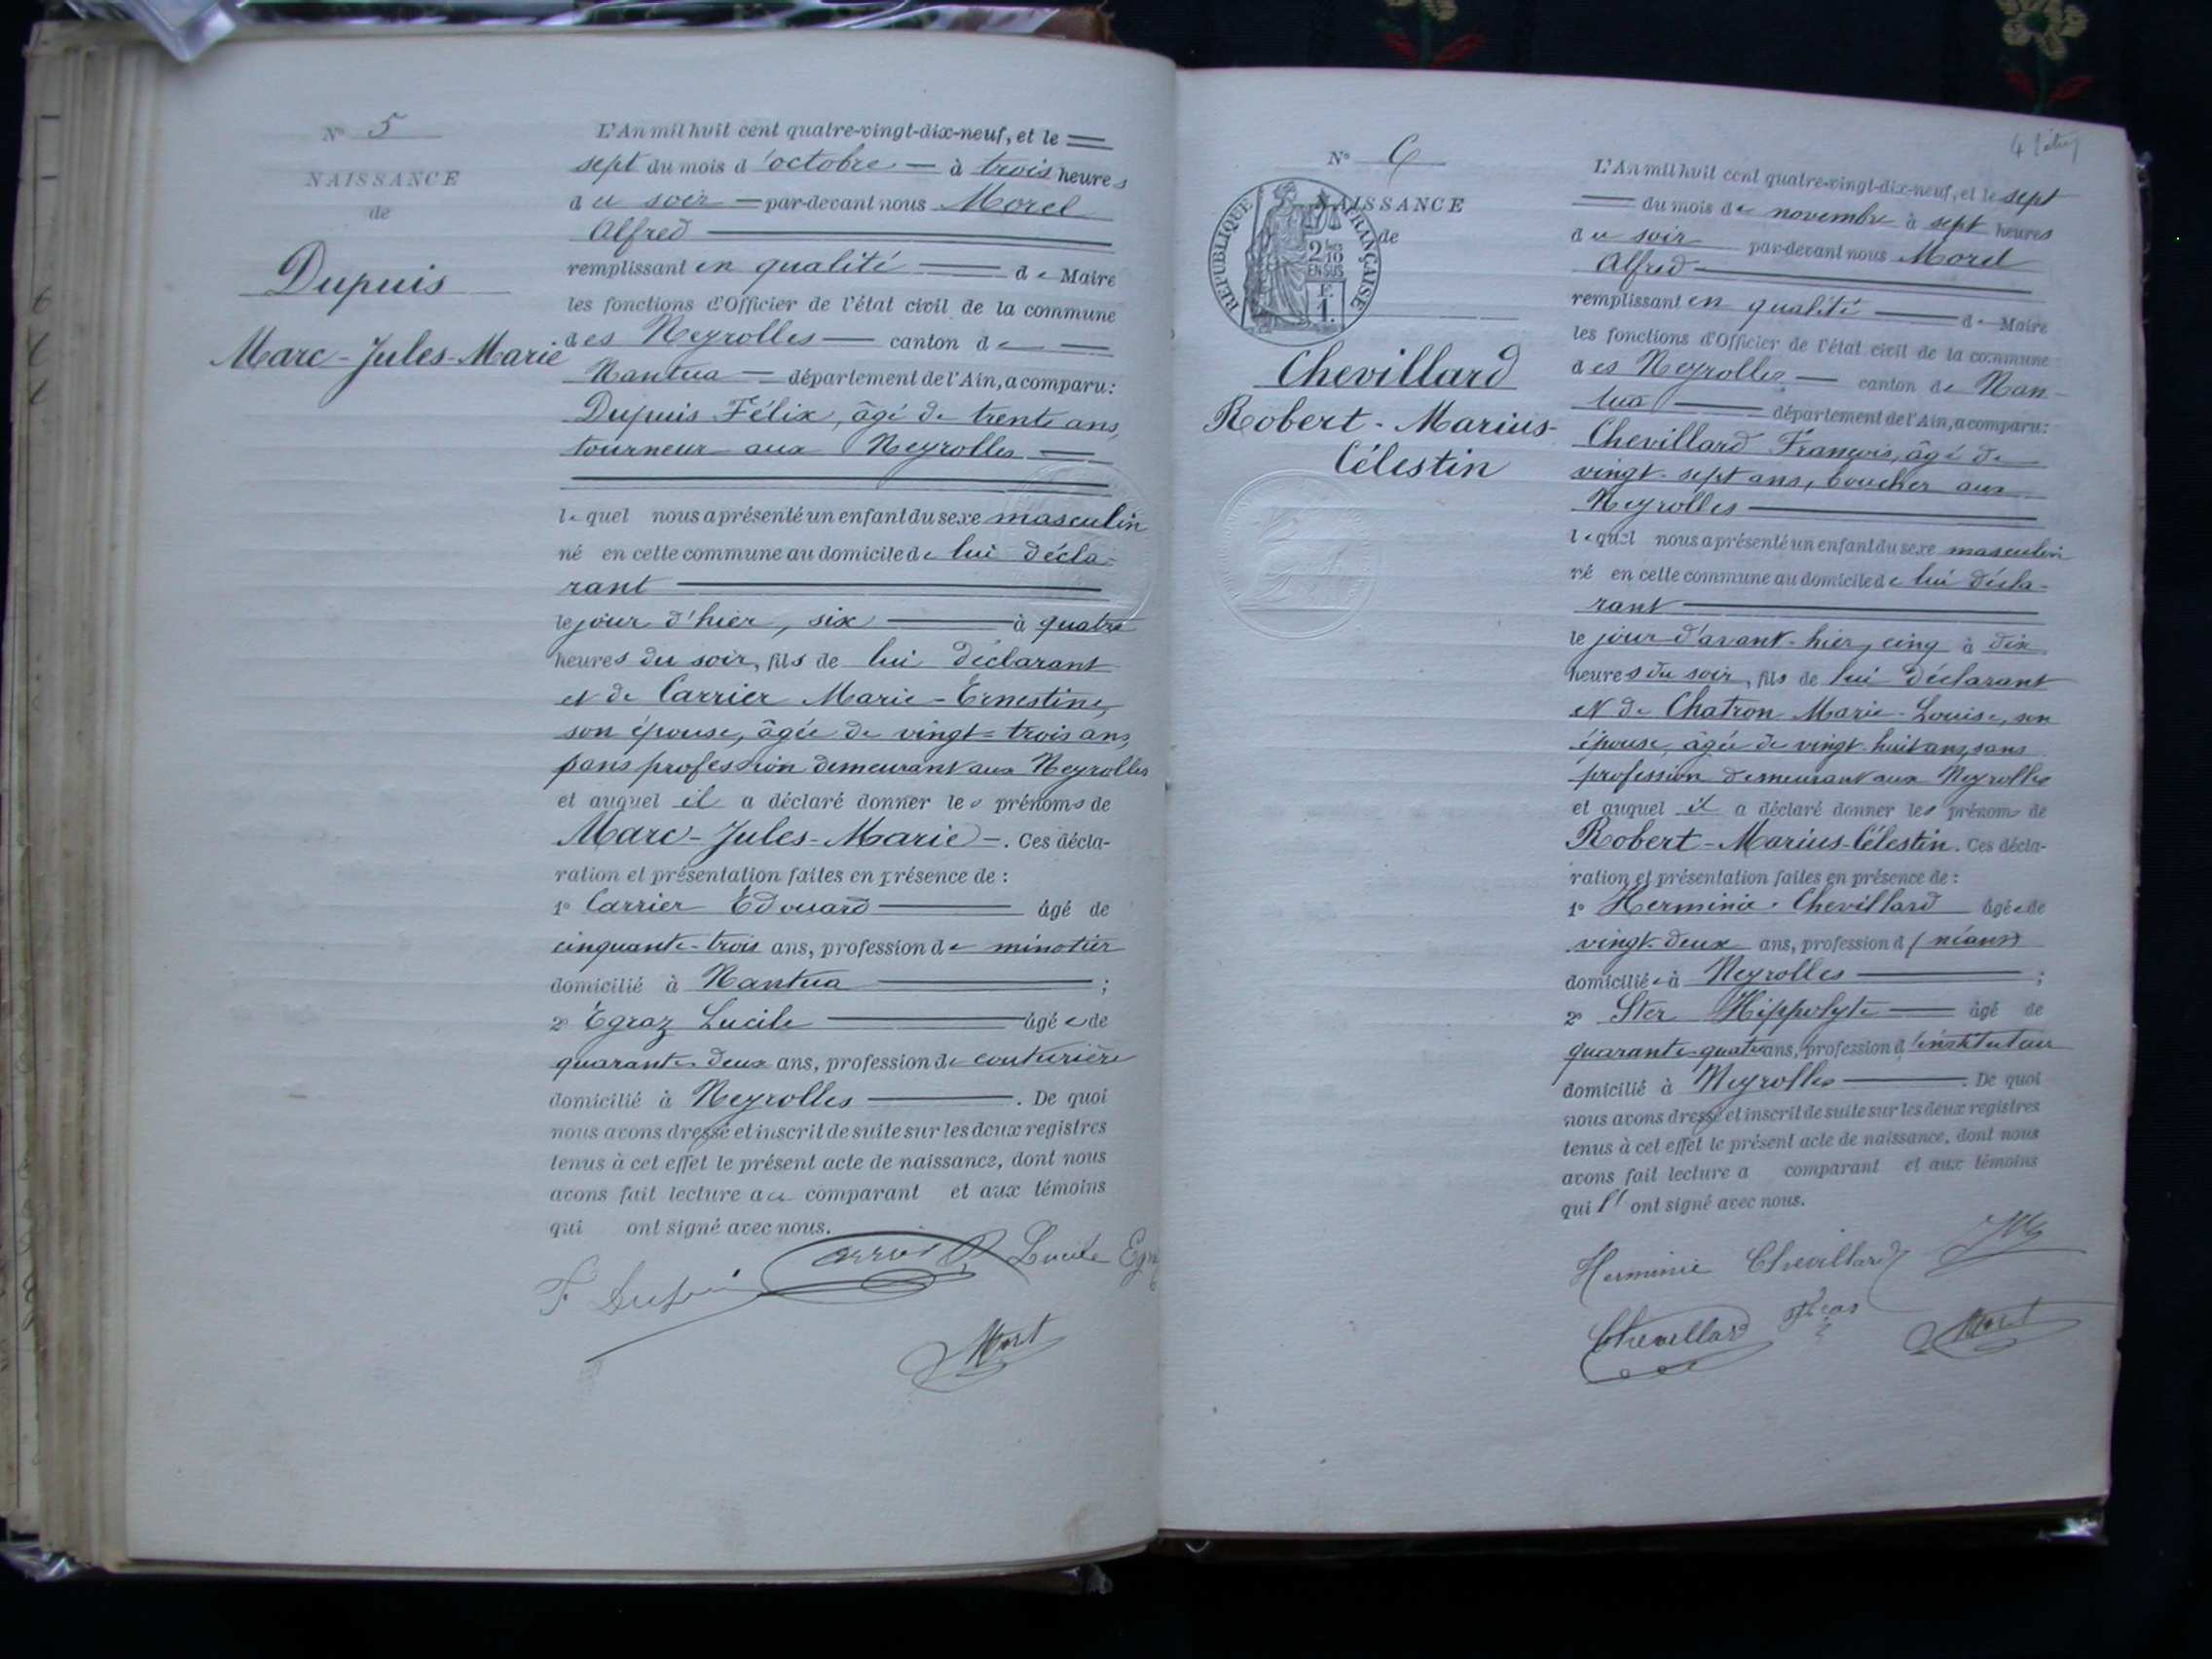 N° 5
NAISSANCE
de
Dupuis
Marc-Jules-Marie
L'An mil huit cent quatre-vingt-dix-neuf, et le
sept du mois d'octobre — à trois heures
du soir — par-devant nous Morel
Alfred
remplissant en qualité de Maire
les fonctions d'Officier de l'état civil de la commune
des Neyrolles — canton de —
Nantua — département de l'Ain, a comparu:
Dupuis Félix, âgé de trente ans,
tourneur aux Neyrolles —
lequel nous a présenté un enfant du sexe masculin
né en cette commune au domicile de lui décla-
rant
le jour d'hier, six — à quatre
heures du soir, fils de lui déclarant
et de Carrier Marie-Ernestine,
son épouse, âgée de vingt-trois ans,
sans profession demeurant aux Neyrolles
et auquel il a déclaré donner les prénoms de
Marc-Jules-Marie —. Ces décla-
ration et présentation faites en présence de :
1° Carrier Edouard — âgé de
cinquante-trois ans, profession de minotier
domicilié à Nantua — ;
2° Egraz Lucile — âgée de
quarante-deux ans, profession de couturière
domicilié à Neyrolles —. De quoi
nous avons dressé et inscrit de suite sur les deux registres
tenus à cet effet le présent acte de naissance, dont nous
avons fait lecture au comparant et aux témoins
qui ont signé avec nous.
F. Dupuis Carrier Lucile Egr
Morel
4
N° 6
NAISSANCE
de
REPUBLIQUE FRANÇAISE
2/10
EN SUS
F.
1.
Chevillard
Robert-Marius-
Célestin
L'An mil huit cent quatre-vingt-dix-neuf, et le sept
— du mois de novembre à sept heures
du soir par-devant nous Morel
Alfred —
remplissant en qualité — de Maire
les fonctions d'Officier de l'état civil de la commune
des Neyrolles — canton de Nan-
tua — département de l'Ain, a comparu:
Chevillard François, âgé de
vingt-sept ans, boucher aux
Neyrolles —
lequel nous a présenté un enfant du sexe masculin
né en cette commune au domicile de lui décla-
rant —
le jour d'avant-hier, cinq à dix
heures du soir, fils de lui déclarant
et de Chatron Marie-Louise, son
épouse, âgée de vingt-huit ans, sans
profession demeurant aux Neyrolles
et auquel il a déclaré donner les prénoms de
Robert-Marius-Célestin. Ces décla-
ration et présentation faites en présence de :
1° Herminie Chevillard âgée de
vingt-deux ans, profession d (néant)
domiciliée à Neyrolles — ;
2° Ster Hippolyte — âgé de
quarante-quatre ans, profession d'instituteur
domicilié à Neyrolles —. De quoi
nous avons dressé et inscrit de suite sur les deux registres
tenus à cet effet le présent acte de naissance, dont nous
avons fait lecture a comparant et aux témoins
qui l' ont signé avec nous.
Herminie Chevillard
Chevillard Morel